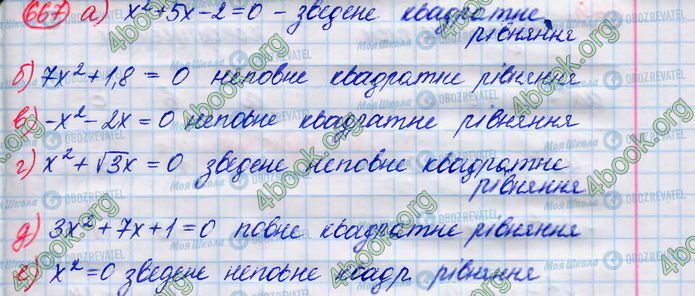 667) а) x² + 5x - 2 = 0 - зведене квадратне
рівняння
б) 7x² + 1,8 = 0 неповне квадратне рівняння
в) -x² - 2x = 0 неповне квадратне рівняння
г) x² + √3x = 0 зведене неповне квадратне
рівняння
д) 3x² + 7x + 1 = 0 повне квадратне рівняння
е) x² = 0 зведене неповне квадр рівняння